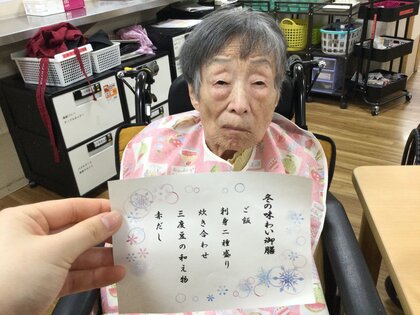 冬の味わい御膳
ご飯
刺身二種盛り
炊き合わせ
三度豆の和え物
赤だし